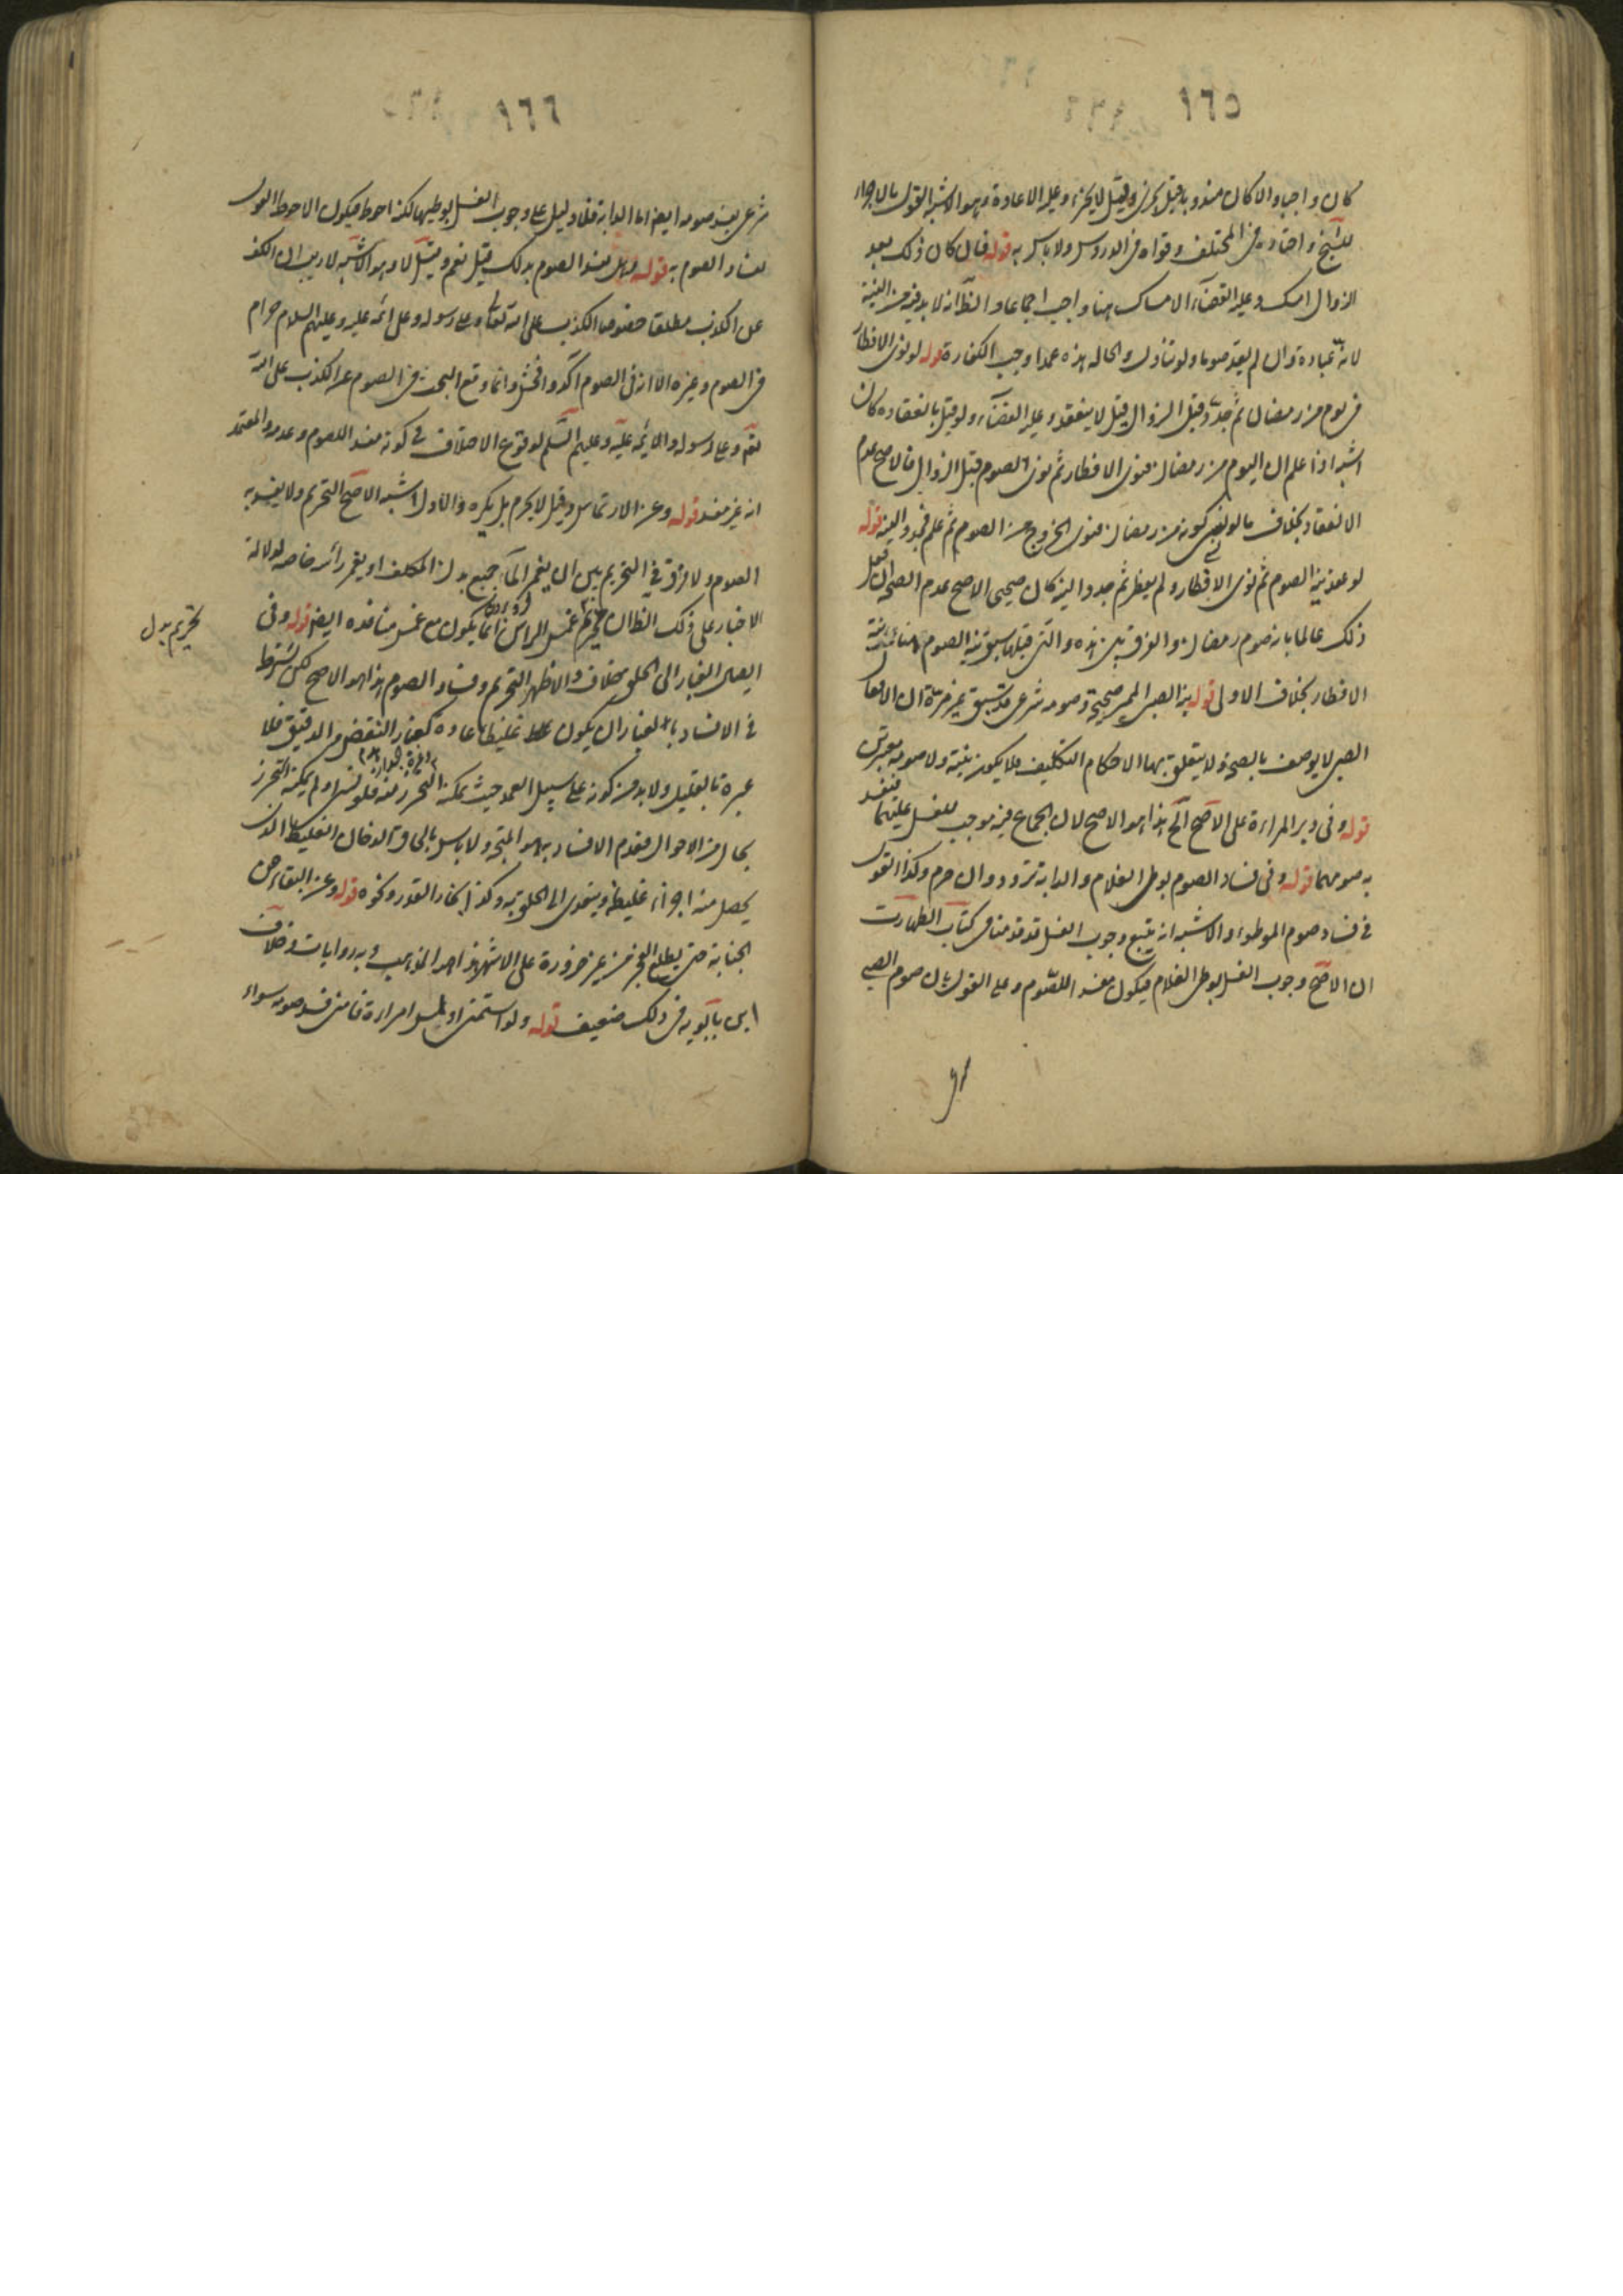 ١٦٥
كان واجبا والا كان مندوبا وقيل يجزى وقيل لا يجزى وعليه الاعادة وهو الاشبه القول بالاجزاء
للشيخ واختاره فى المختلف وقواه فى الدروس ولا باس به قوله فان كان ذلك بعد
الزوال امسك وعليه القضاء الامساك هنا واجب اجماعا والظ انه لا بد فيه من النية
لانه عبادة وان لم يعد صوما ولو تناول والحاله هذه عمدا وجب الكفارة قوله لو نوى الافطار
فى يوم من رمضان ثم جدد قبل الزوال قيل لا ينعقد وعليه القضاء ولو قيل بانعقاده كان
اشبه اذا علم ان اليوم من رمضان فنوى الافطار ثم نوى الصوم قبل الزوال فالاصح عدم
الانعقاد بخلاف ما لو نسى كونه من رمضان فنوى الخروج من الصوم ثم علم فجدد النية قوله
لو عقد نية الصوم ثم نوى الافطار ولم يفطر ثم جدد النية كان صحيحى الاصح عدم الصحة ان فعل
ذلك عالما بانه صوم رمضان والفرق بين هذه والتى قبلها سبق نية الصوم هنا على نية
الافطار بخلاف الاولى قوله نية الصبى المميز صحيحة وصومه شرعى قد سبق غير مرة ان الافعال
الصبى لا يوصف بالصحة ولا يتعلق بها الاحكام التكليف فلا يكون نيته ولا صومه معتبرتين
قوله وفى دبر المراءة على الاصح الخ هذا هو الاصح لان الجماع فيه موجب للغسل عليهما فيفسد
به صومهما قوله وفى فساد الصوم بوطى الغلام والدابة تردد وان حرم وكذا القول
فى فساد صوم الموطوء والاشبه انه يتبع وجوب الغسل قد قدمنا فى كتاب الطهارت
ان الاصح وجوب الغسل بوطى الغلام فيكون مفسدا للصوم وعلى القول بان صوم الصبى
١٦٦
شرعى يفسد صومه ايضا اما الدابة فلا دليل على وجوب الغسل بوطيها لكنه احوط فيكون الاحوط القول
بفساد الصوم به قوله وهل يفسد الصوم بذلك قيل نعم وقيل لا وهو الاشبه لا ريب ان الكف
عن الكذب مطلقا خصوصا الكذب على الله تعالى وعلى رسوله وعلى ائمة عليه وعليهم السلام حرام
فى الصوم وغيره الا انه فى الصوم اكد وافحش وانما وقع البحث فى الصوم عن الكذب على الله
تعم وعلى رسوله والائمة عليه وعليهم السلم لوقوع الاختلاف فى كونه مفسدا للصوم وعدمه والمعتمد
انه غير مفسد قوله وعن الارتماس وقيل لا يحرم بل يكره والاول اشبه الاصح التحريم ولا يفسد به
الصوم ولا فرق فى التحريم بين ان يغمر الماء جميع بدن المكلف او يغمر رأسه خاصه لدلالة
الاخبار على ذلك الظ ان تحريم غمس الراس انما يكون مع غمس منافذه ايضا قوله وفى
تحريم بدل
ايصال الغبار الى الحلق خلاف والاظهر التحريم وفساد الصوم هذا هو الاصح لكن يشترط
فى الافساد بالغبار ان يكون غليظا عادة كغبار النقض والدقيق فلا
عبرة بالقليل ولا بد من كونه على سبيل العمد حيث يمكنه التحرز منه فلو نسى او لم يمكنه التحرز
بحال من الاحوال فعدم الافساد به هو المتجه ولا باس بالحاق الدخان الغليظ الذى
يحصل منه اجزاء غليظة ويتعدى الى الحلق به وكذا بخار القدر ونحوه قوله وعن البقاء على
الجنابة حتى يطلع الفجر من غير ضرورة على الاشهر هذا هو المذهب وبه روايات وخلاف
ابن بابويه فى ذلك ضعيف قوله ولو استمنى او لمس امراءة فامنى فسد صومه سواء